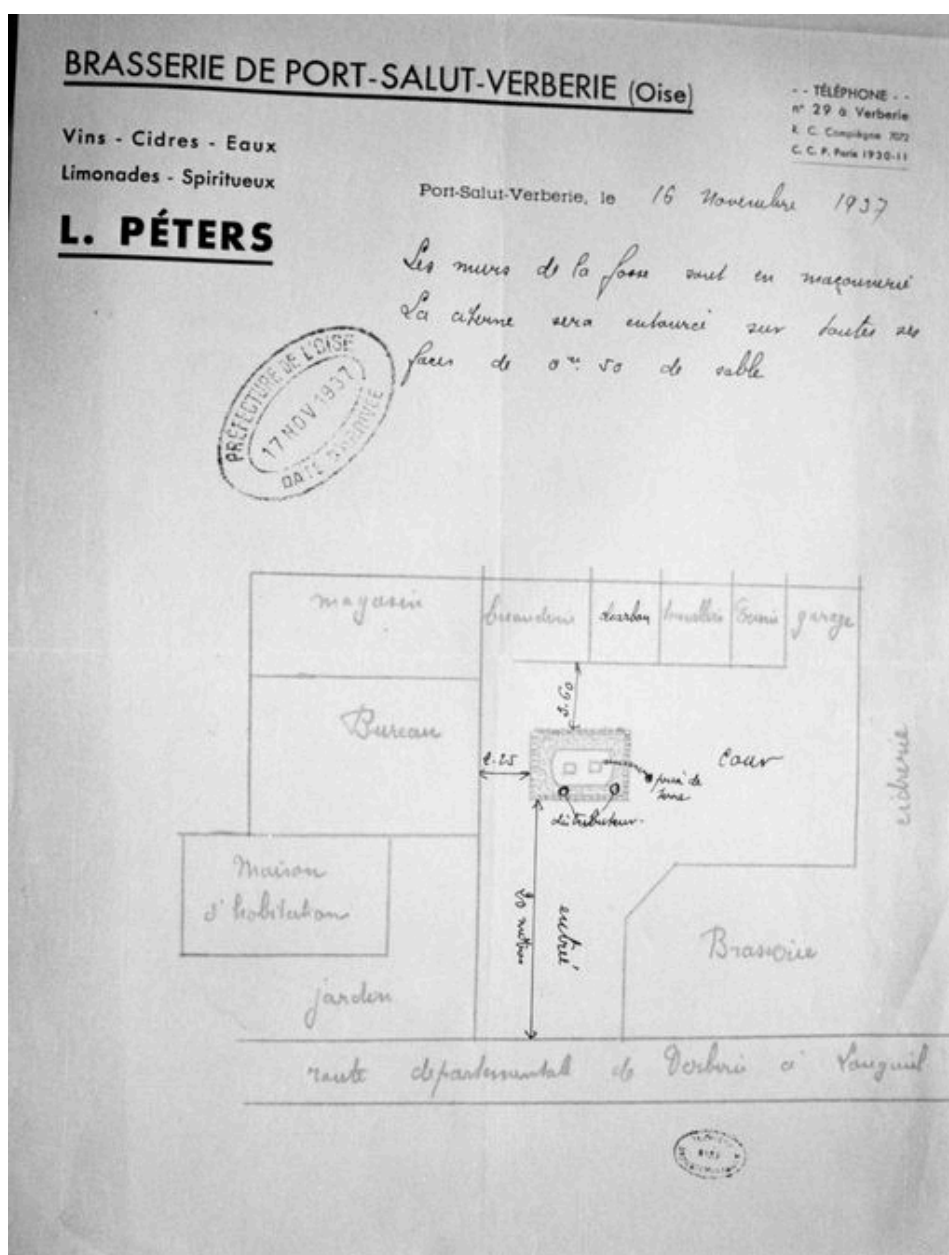 BRASSERIE DE PORT-SALUT-VERBERIE (Oise)
- - TÉLÉPHONE - -
n° 29 à Verberie
R. C. Compiègne 7072
C. C. P. Paris 1930-11
Vins - Cidres - Eaux
Limonades - Spiritueux
L. PÉTERS
Port-Salut-Verberie, le 16 Novembre 1937
Les murs de la fosse sont en maçonnerie
La citerne sera entource sur toutes ses
faces de 0m. 50 de sable
PRÉFECTURE DE L'OISE
17 NOV 1937
DATE D'ARRIVÉE
magasin
buanderie
charbon
Écurie
garage
Bureau
5.60
2.25
cour
prise de
terre
distributeur
cidrerie
Maison
d'habitation
20 mètres
entrée
Brasserie
jardin
route departementall de Verberie a Longueil